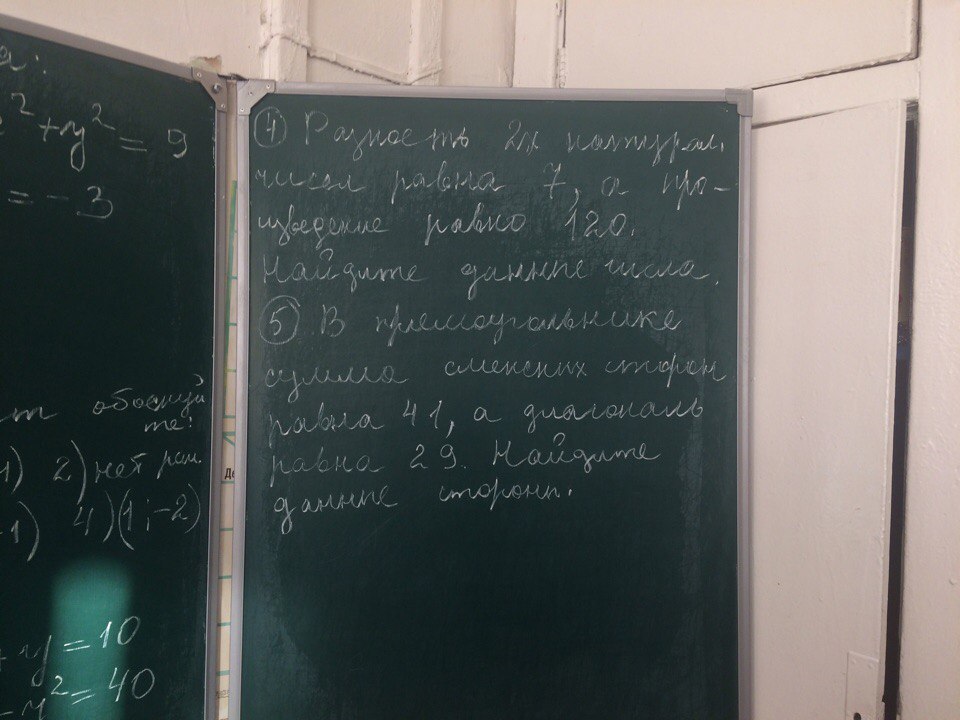 а:
x² + y² = 9
= -3
ит обоснуй
те!
1) 2) нет реш.
-1) 4) (1; -2)
+ y = 10
- y² = 40
④ Разность 2х натурал.
чисел равна 7, а про-
изведение равно 120.
Найдите данные числа.
⑤ В прямоугольнике
сумма смежных сторон
равна 41, а диагональ
равна 29. Найдите
данные стороны.